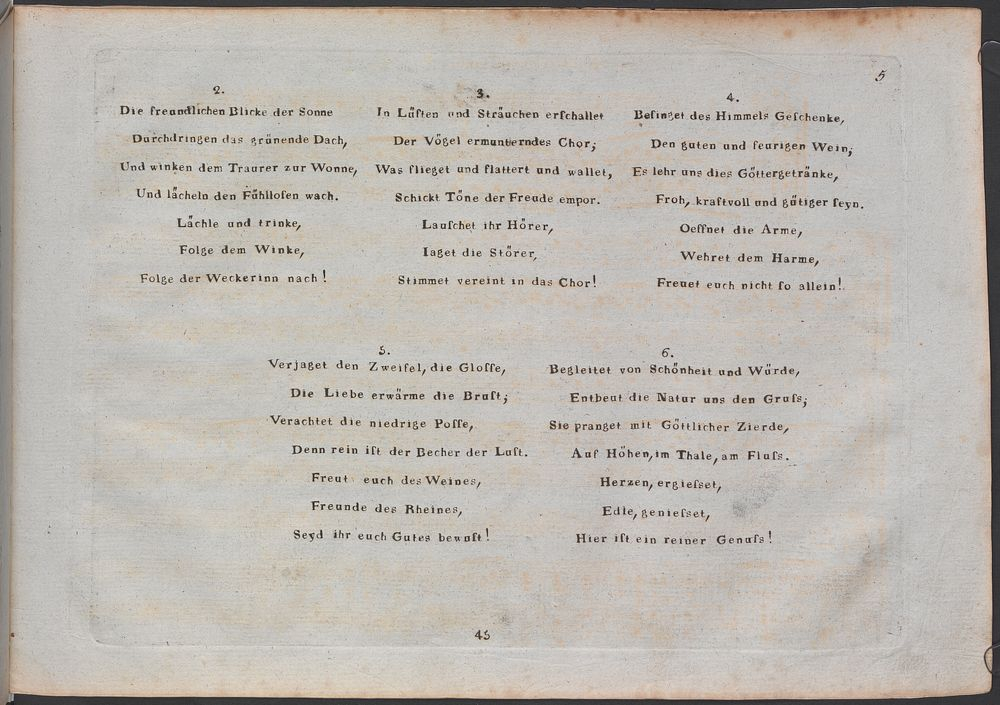 5
2.
Die freundlichen Blicke der Sonne
Durchdringen das grünende Dach,
Und winken dem Traurer zur Wonne,
Und lächeln den Fühllosen wach.
Lächle und trinke,
Folge dem Winke,
Folge der Weckerinn nach!
3.
In Lüften und Sträuchen erſchallet
Der Vögel ermunterndes Chor;
Was flieget und flattert und wallet,
Schickt Töne der Freude empor.
Lauſchet ihr Hörer,
Iaget die Störer,
Stimmet vereint in das Chor!
4.
Beſinget des Himmels Geſchenke,
Den guten und feurigen Wein;
Es lehr uns dies Göttergetränke,
Froh, kraftvoll und gütiger ſeyn.
Oeffnet die Arme,
Wehret dem Harme,
Freuet euch nicht ſo allein!
5.
Verjaget den Zweifel, die Gloſſe,
Die Liebe erwärme die Bruſt;
Verachtet die niedrige Poſſe,
Denn rein iſt der Becher der Luſt.
Freut euch des Weines,
Freunde des Rheines,
Seyd ihr euch Gutes bewuſt!
6.
Begleitet von Schönheit und Würde,
Entbeut die Natur uns den Gruſs;
Sie pranget mit Göttlicher Zierde,
Auf Höhen, im Thale, am Fluſs.
Herzen, ergieſset,
Edle, genieſset,
Hier iſt ein reiner Genuſs!
45